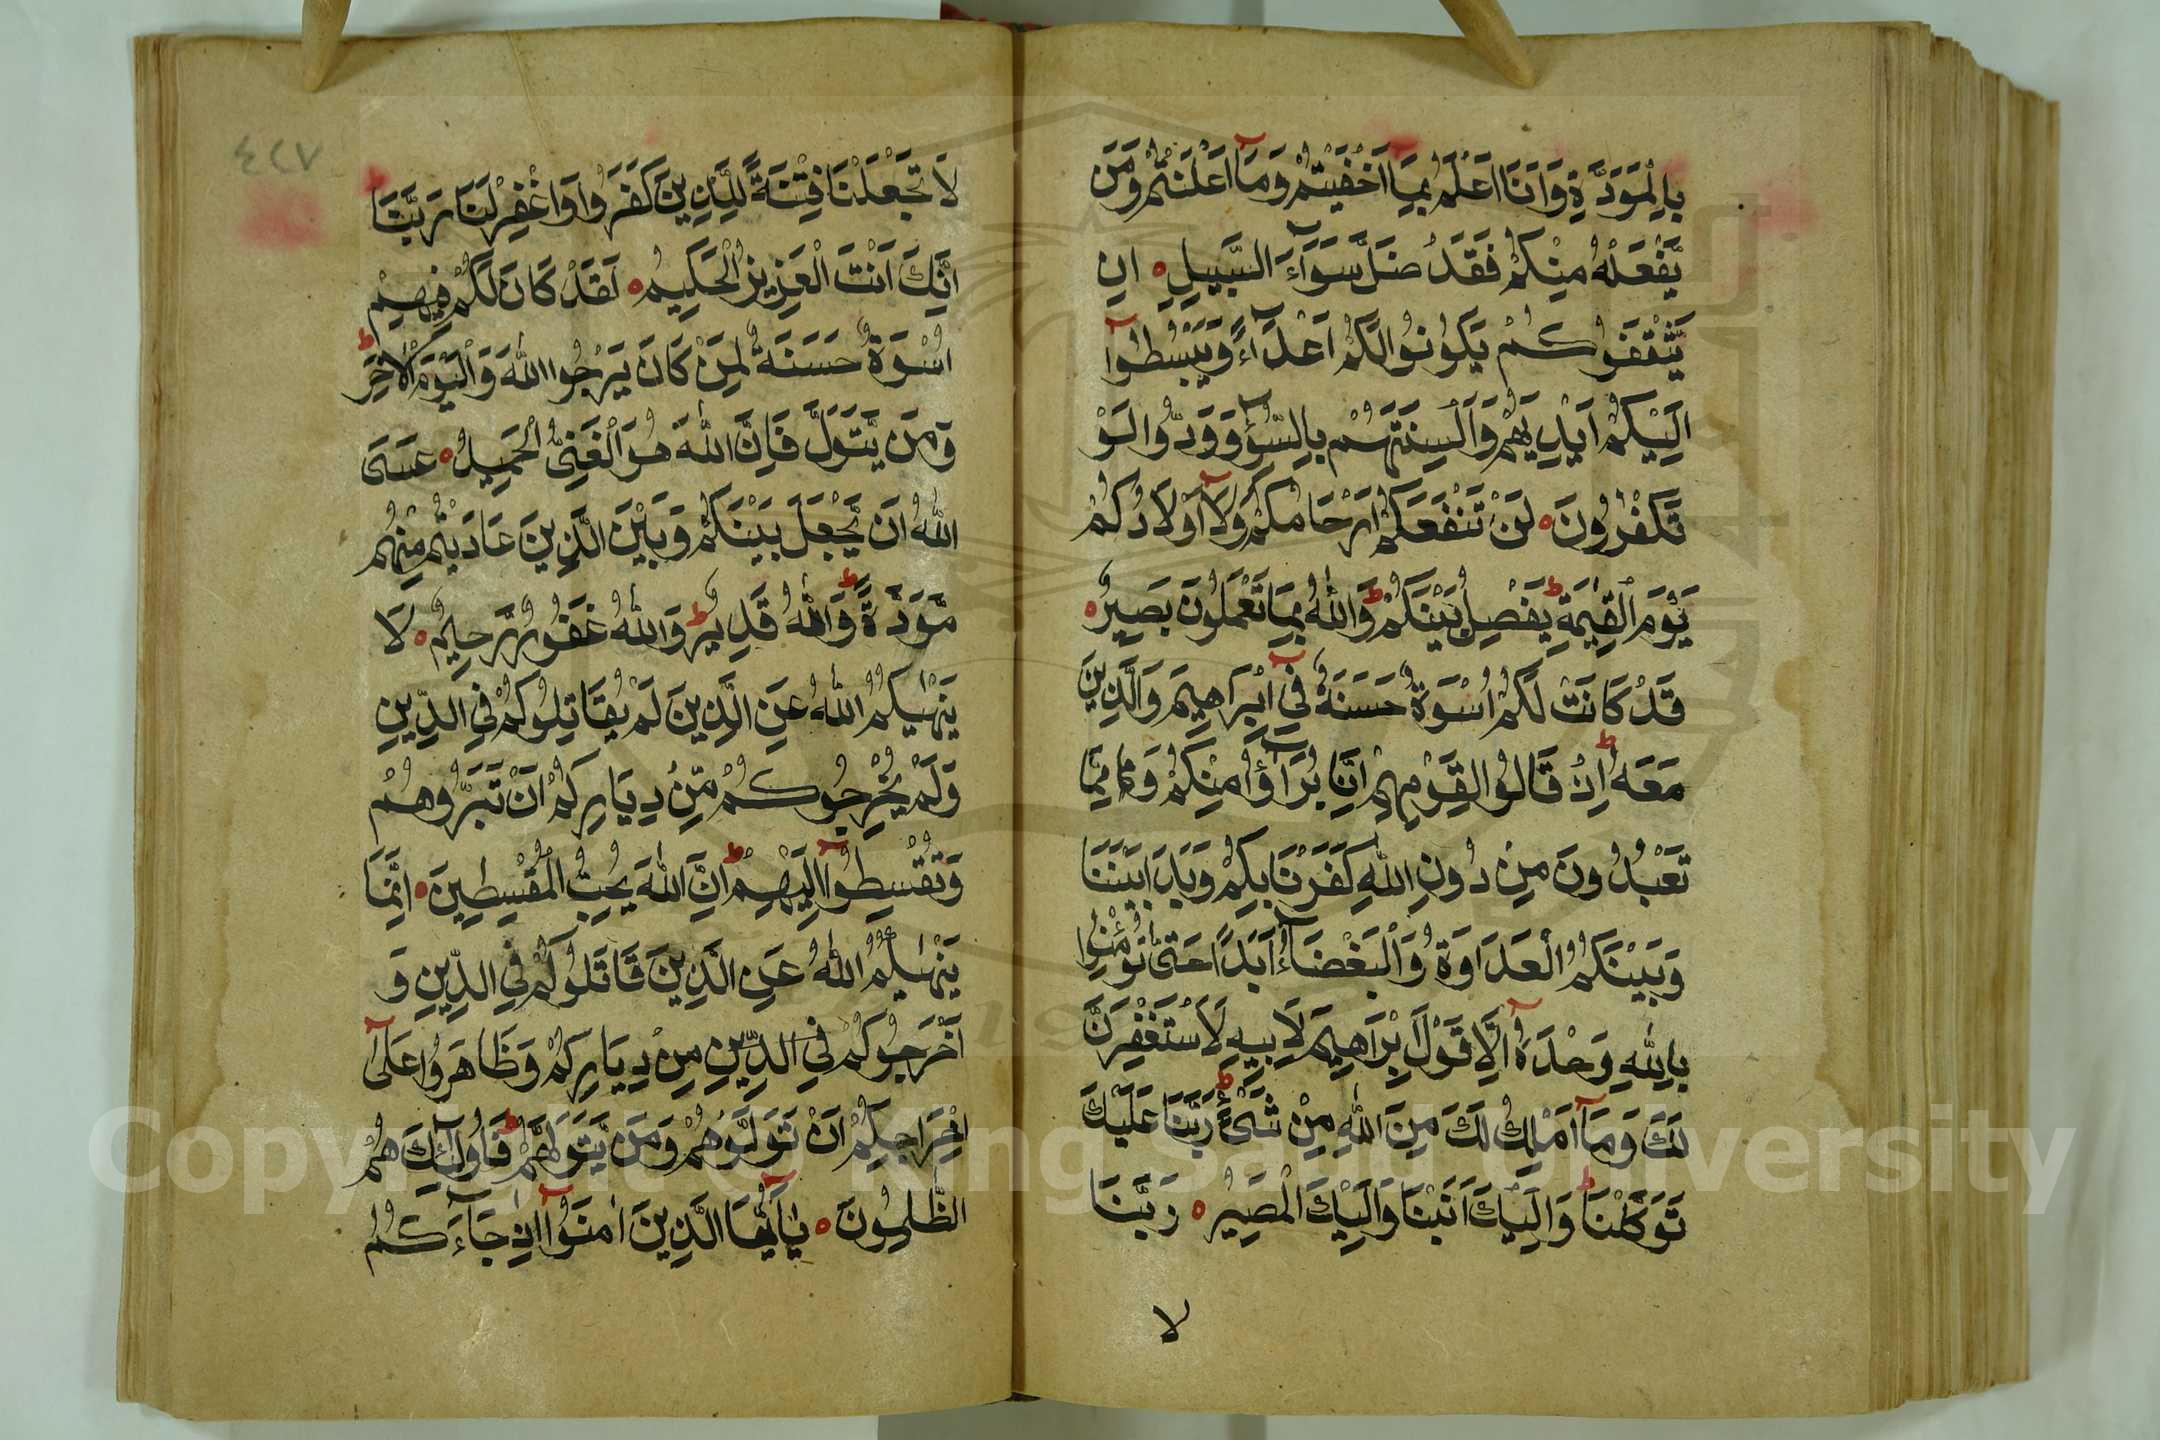 بِالْمَوَدَّةِ وَاَنَا اَعْلَمُ بِمَا اَخْفَيْتُمْ وَمَا اَعْلَنْتُمْ وَمَنْ
يَّفْعَلْهُ مِنْكُمْ فَقَدْ ضَلَّ سَوَآءَ السَّبِيلِ اِنْ
يَّثْقَفُوكُمْ يَكُونُوا لَكُمْ اَعْدَآءً وَّيَبْسُطُوٓا
اِلَيْكُمْ اَيْدِيَهُمْ وَاَلْسِنَتَهُمْ بِالسُّوٓءِ وَوَدُّوا لَوْ
تَكْفُرُونَ لَنْ تَنْفَعَكُمْ اَرْحَامُكُمْ وَلَآ اَوْلَادُكُمْ
يَوْمَ الْقِيٰمَةِ ط يَفْصِلُ بَيْنَكُمْ ط وَاللّٰهُ بِمَا تَعْمَلُونَ بَصِيرٌ
قَدْ كَانَتْ لَكُمْ اُسْوَةٌ حَسَنَةٌ فِىٓ اِبْرَاهِيمَ وَالَّذِينَ
مَعَهُ ط اِذْ قَالُوا لِقَوْمِهِمْ اِنَّا بُرَآؤُا مِنْكُمْ وَمِمَّا
تَعْبُدُونَ مِنْ دُونِ اللّٰهِ كَفَرْنَا بِكُمْ وَبَدَا بَيْنَنَا
وَبَيْنَكُمُ الْعَدَاوَةُ وَالْبَغْضَآءُ اَبَدًا حَتّٰى تُؤْمِنُوا
بِاللّٰهِ وَحْدَهُٓ اِلَّا قَوْلَ اِبْرَاهِيمَ لِاَبِيهِ لَاَسْتَغْفِرَنَّ
لَكَ وَمَآ اَمْلِكُ لَكَ مِنَ اللّٰهِ مِنْ شَىْءٍ ط رَبَّنَا عَلَيْكَ
تَوَكَّلْنَا ط وَاِلَيْكَ اَنَبْنَا وَاِلَيْكَ الْمَصِيرُ رَبَّنَا
لا
٤٢٧
لَا تَجْعَلْنَا فِتْنَةً لِّلَّذِينَ كَفَرُوا وَاغْفِرْ لَنَا رَبَّنَا ط
اِنَّكَ اَنْتَ الْعَزِيزُ الْحَكِيمُ لَقَدْ كَانَ لَكُمْ فِيهِمْ
اُسْوَةٌ حَسَنَةٌ لِمَنْ كَانَ يَرْجُوا اللّٰهَ وَالْيَوْمَ الْاٰخِرَ ط
وَمَنْ يَّتَوَلَّ فَاِنَّ اللّٰهَ هُوَ الْغَنِىُّ الْحَمِيدُ عَسَى
اللّٰهُ اَنْ يَّجْعَلَ بَيْنَكُمْ وَبَيْنَ الَّذِينَ عَادَيْتُمْ مِنْهُمْ
مَّوَدَّةً ط وَاللّٰهُ قَدِيرٌ ط وَاللّٰهُ غَفُورٌ رَّحِيمٌ لَا
يَنْهٰيكُمُ اللّٰهُ عَنِ الَّذِينَ لَمْ يُقَاتِلُوكُمْ فِى الدِّينِ
وَلَمْ يُخْرِجُوكُمْ مِّنْ دِيَارِكُمْ اَنْ تَبَرُّوهُمْ
وَتُقْسِطُوٓا اِلَيْهِمْ ط اِنَّ اللّٰهَ يُحِبُّ الْمُقْسِطِينَ اِنَّمَا
يَنْهٰيكُمُ اللّٰهُ عَنِ الَّذِينَ قَاتَلُوكُمْ فِى الدِّينِ وَ
اَخْرَجُوكُمْ فِى الدِّينِ مِنْ دِيَارِكُمْ وَظَاهَرُوا عَلٰٓى
اِخْرَاجِكُمْ اَنْ تَوَلَّوْهُمْ وَمَنْ يَّتَوَلَّهُمْ ط فَاُولٰٓئِكَ هُمُ
الظّٰلِمُونَ يٰٓاَيُّهَا الَّذِينَ اٰمَنُوٓا اِذَا جَآءَكُمُ
Copyright © King Saud University